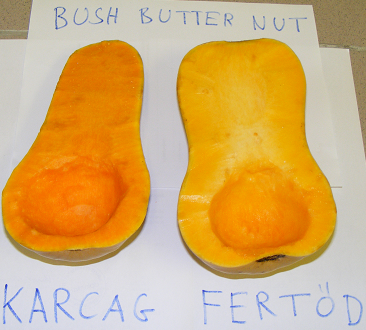 BUSH BUTTER NUT
KARCAG FERTÖD